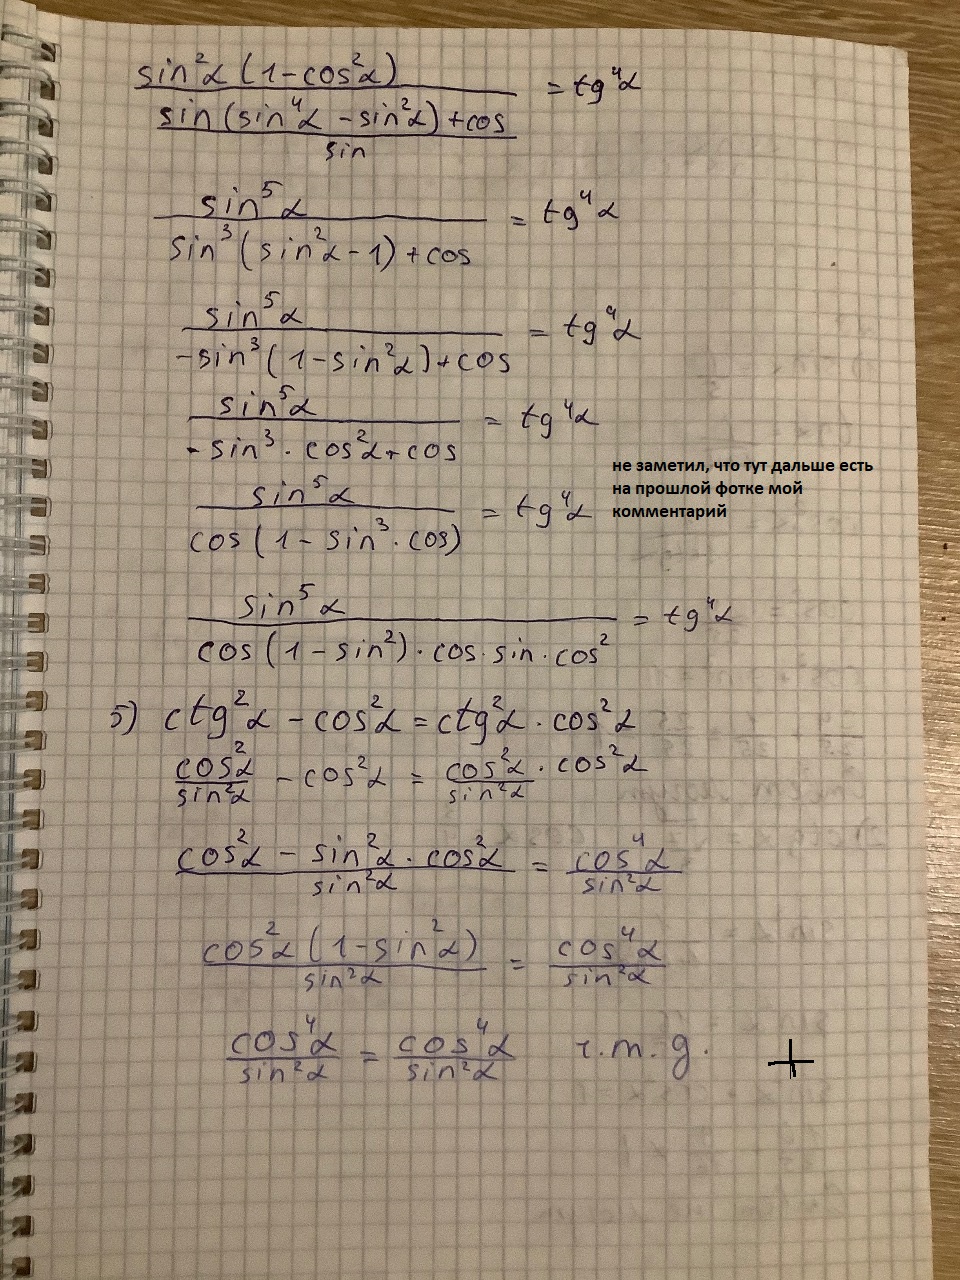 sin²α (1 - cos²α) / ((sin (sin⁴α - sin²α) + cos) / sin) = tg⁴α
sin⁵α / (sin³ (sin²α - 1) + cos) = tg⁴α
sin⁵α / (-sin³ (1 - sin²α) + cos) = tg⁴α
sin⁵α / (-sin³ · cos²α + cos) = tg⁴α
не заметил, что тут дальше есть
на прошлой фотке мой
комментарий
sin⁵α / (cos (1 - sin³ · cos)) = tg⁴α
sin⁵α / (cos (1 - sin²) · cos · sin · cos²) = tg⁴α
5) ctg²α - cos²α = ctg²α · cos²α
cos²α / sin²α - cos²α = cos²α / sin²α · cos²α
(cos²α - sin²α · cos²α) / sin²α = cos⁴α / sin²α
cos²α (1 - sin²α) / sin²α = cos⁴α / sin²α
cos⁴α / sin²α = cos⁴α / sin²α ч.т.д. +